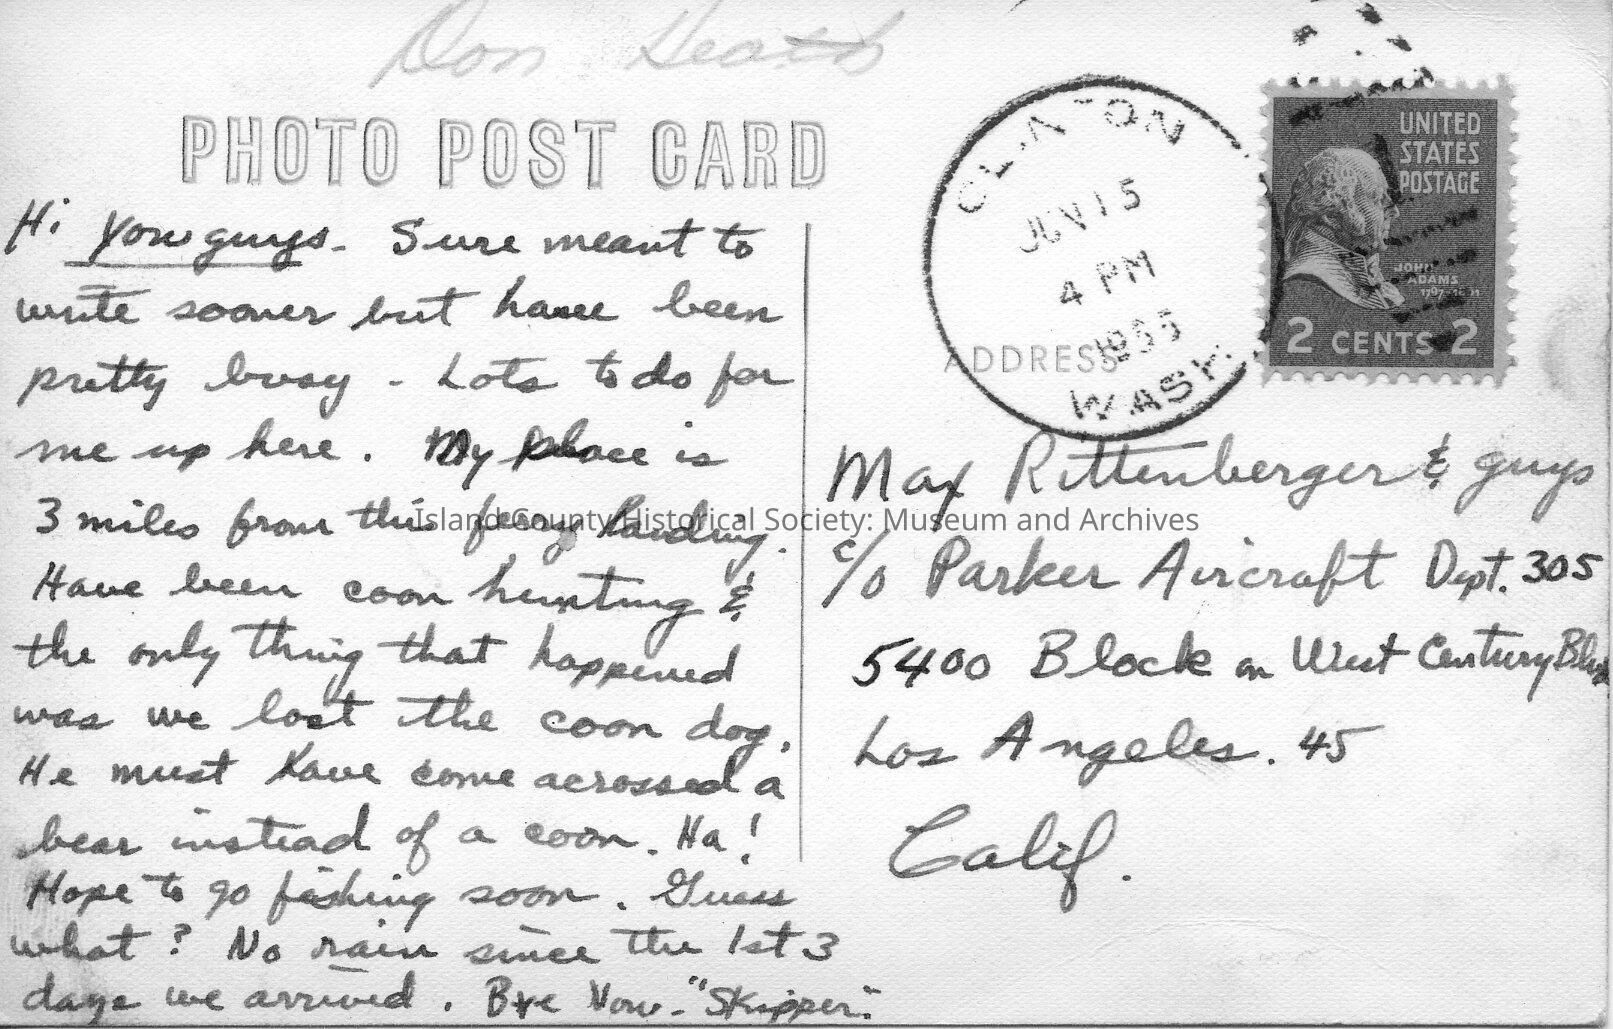 Don Heath
PHOTO POST CARD
Hi You guys - Sure meant to
write sooner but have been
pretty busy - Lots to do for
me up here. My place is
3 miles from this ferry landing.
Have been coon hunting &
the only thing that happened
was we lost the coon dog.
He must have come acrossed a
bear instead of a coon. Ha!
Hope to go fishing soon. Guess
what? No rain since the 1st 3
days we arrived. Bye Now - "Skipper".
CLINTON
15
4 PM
1955
WASH.
UNITED
STATES
POSTAGE
JOHN
ADAMS
2 CENTS 2
ADDRESS
Max Rittenberger & guys
c/o Parker Aircraft Dept. 305
5400 Block on West Century Blvd
Los Angeles. 45
Calif.
Island County Historical Society: Museum and Archives